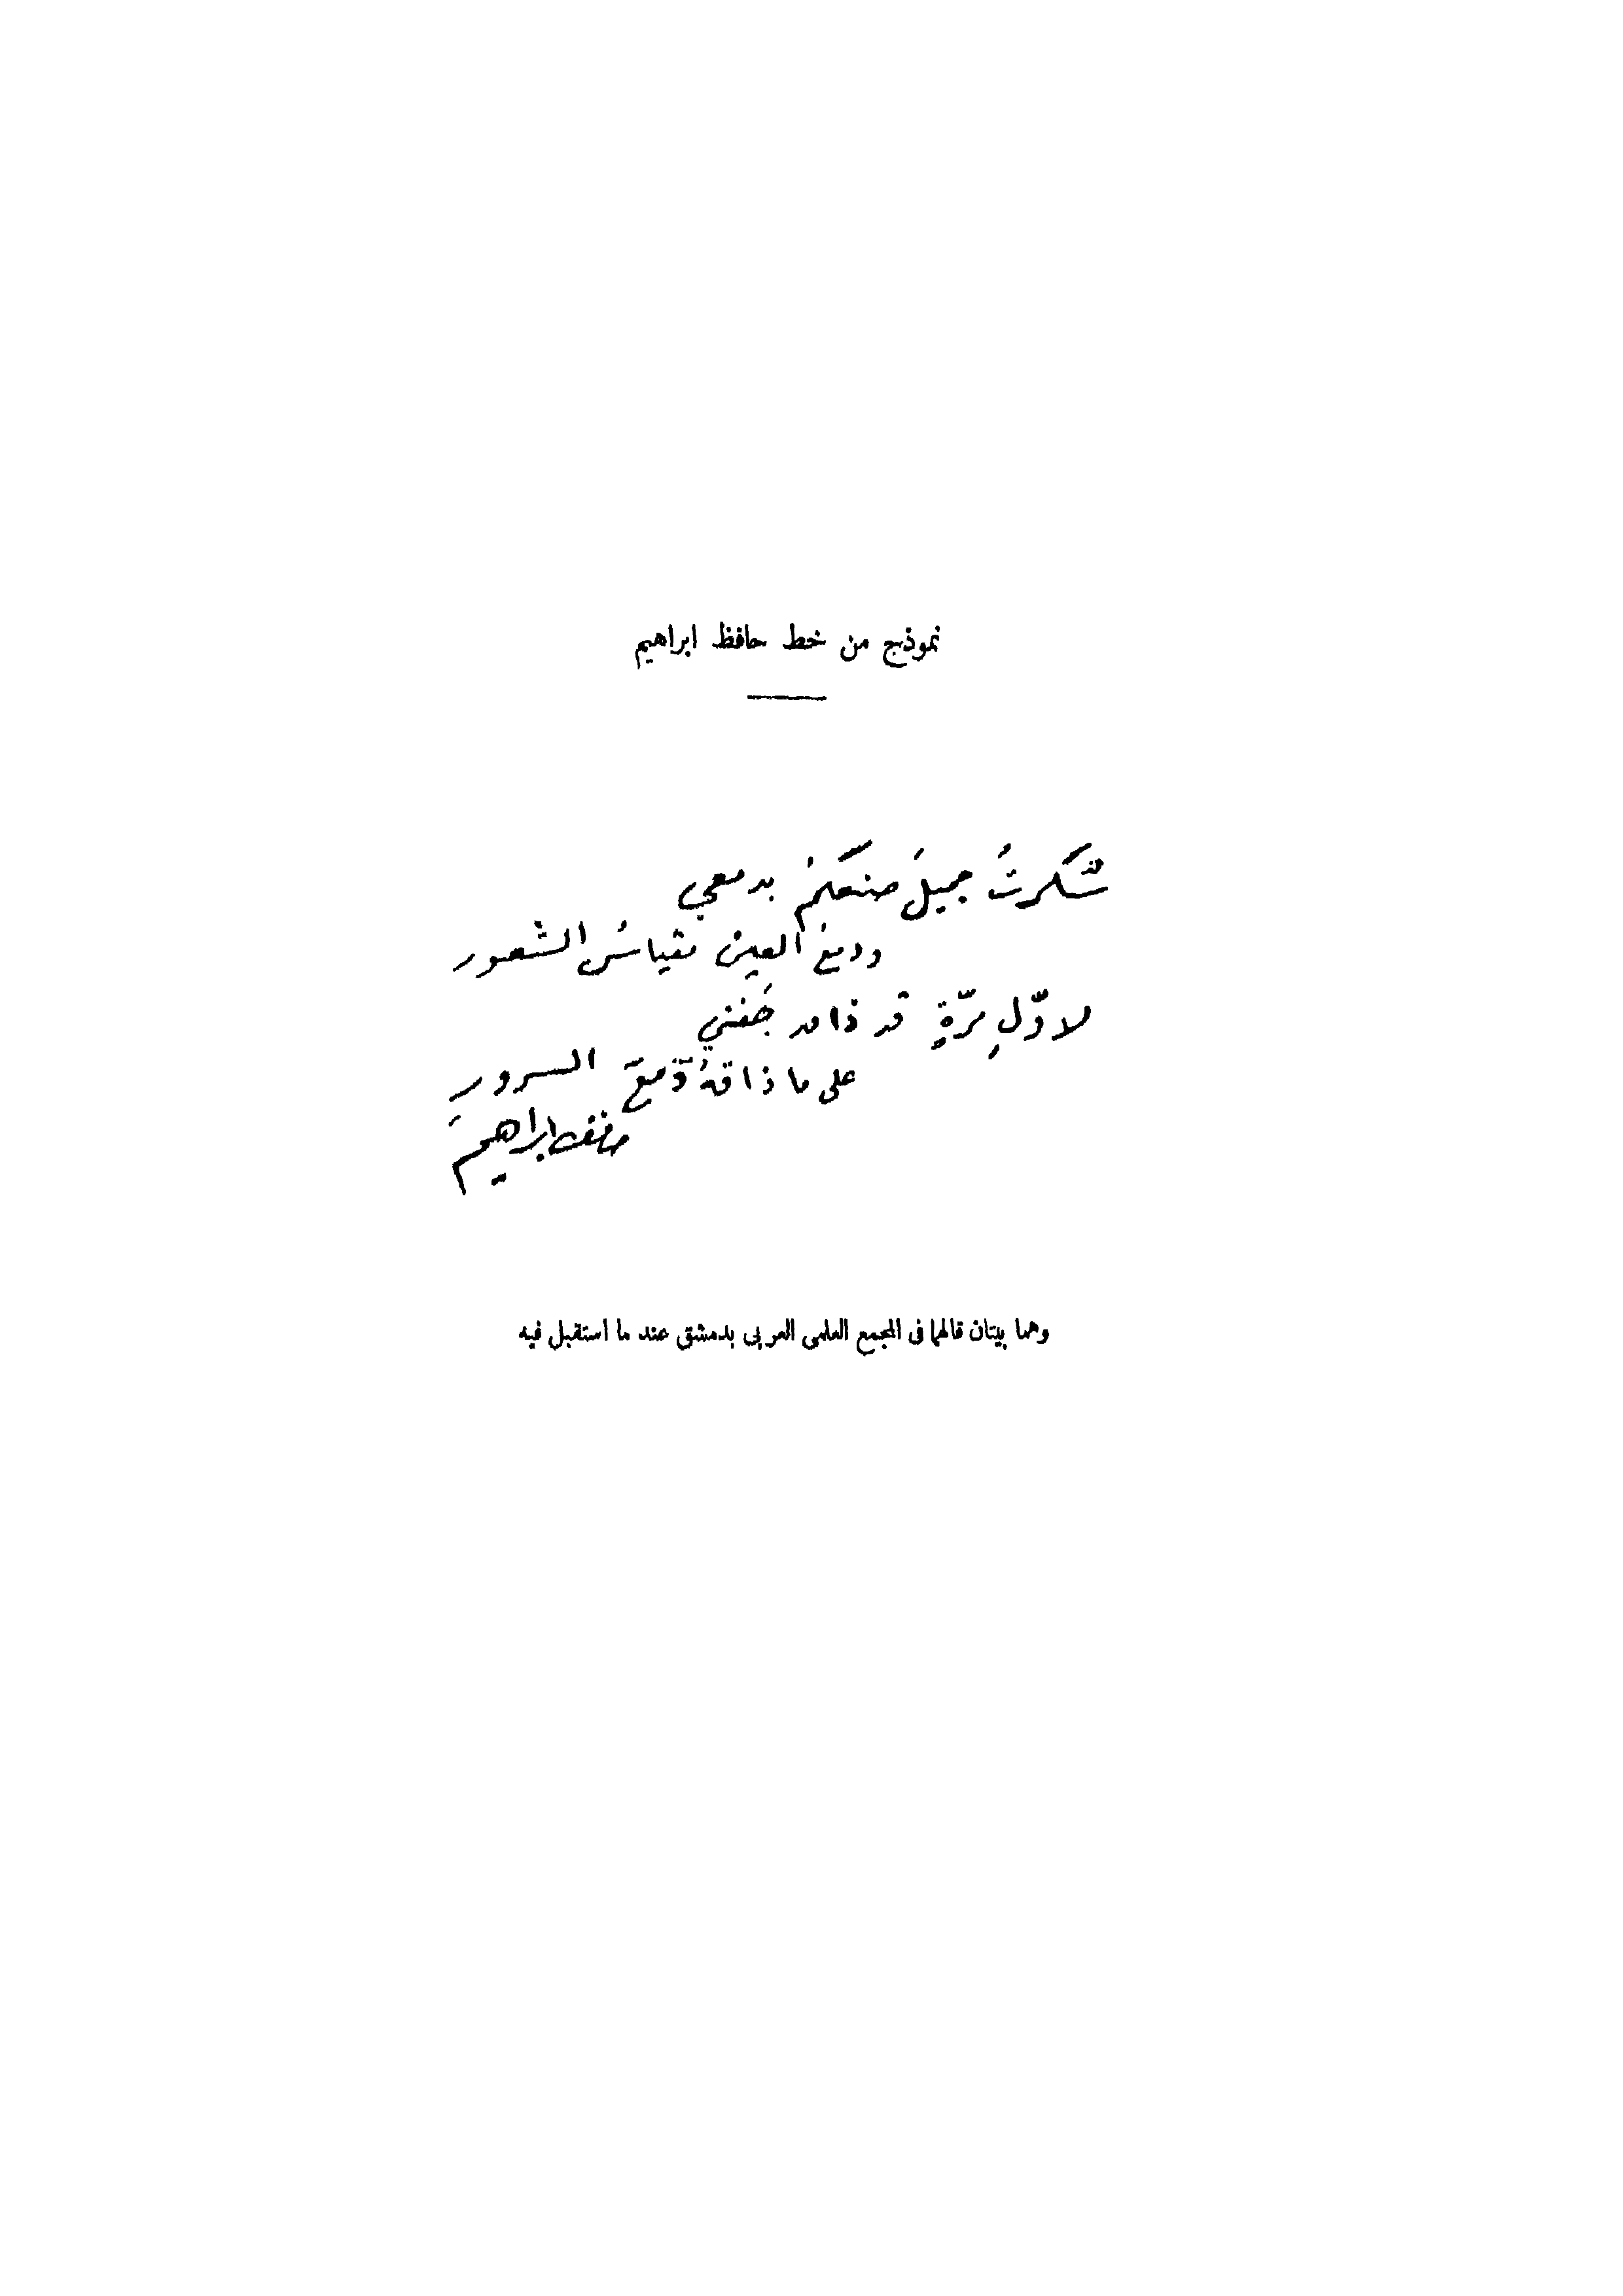 نموذج من خط حافظ ابراهيم
شكرتُ جميلَ صنعكمُ بدمعي
ودمعُ العين مقياسُ الشعور
لاوّلِ مرّةٍ قد ذاق جَفني
على ما ذاقهُ دَمعَ السرور
حافظ ابراهيم
وهما بيتان قالهما فى المجمع العلمى العربى بدمشق عند ما استقبل فيه